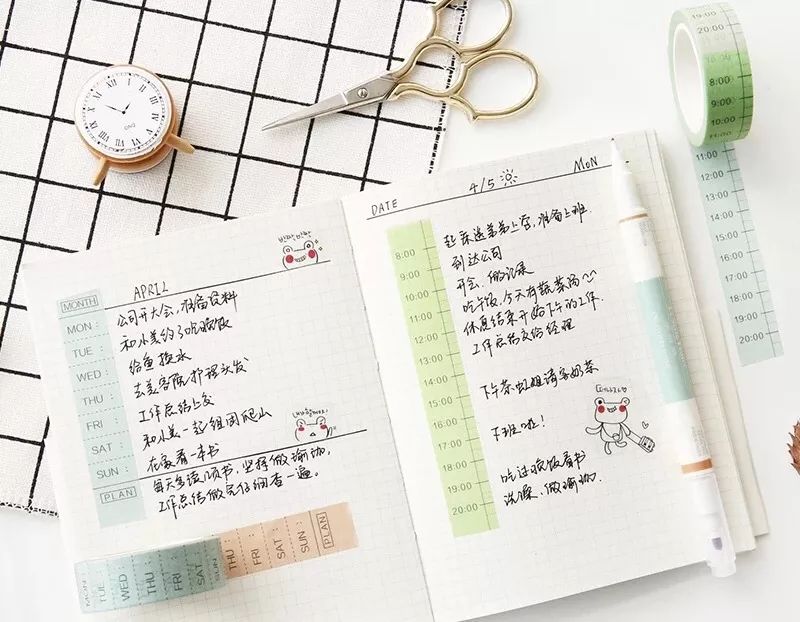 MONTH APRIL
MON: 公司开大会，准备资料
TUE: 和小美约了吃晚饭
WED: 给鱼换水
THU: 去美容院护理头发
FRI: 工作总结上交
SAT: 和小美一起组团爬山
SUN: 在家看一本书
PLAN 每天多读1页书，坚持做瑜伽，
工作总结做完仔细看一遍。
MON TUE WED THU FRI SAT SUN THU FRI SAT SUN PLAN
DATE 4/5 MON
起床送弟弟上学，准备上班.
8:00 到达公司
9:00 开会、做记录
10:00 吃午饭，今天有蔬菜汤~~
11:00 休息结束开始下午的工作.
12:00 工作总结交给经理
13:00
14:00 下午茶虹姐请客奶茶
15:00
16:00 下班啦！
17:00
18:00 吃过晚饭看书
19:00 洗澡、做瑜伽.
20:00
19:00
20:00
8:00
9:00
10:00
11:00
11:00
12:00
13:00
14:00
15:00
16:00
17:00
18:00
19:00
20:00